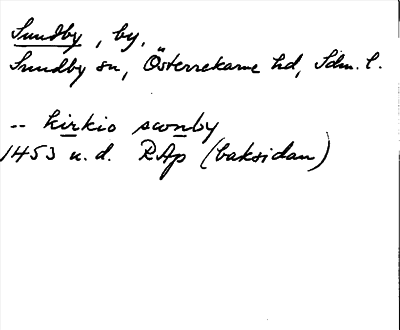 Sundby, by,
Sundby sn, Österrekarne hd, Sdm. l.
-- kirkio swnby
1453 u. d. RAp (baksidan)